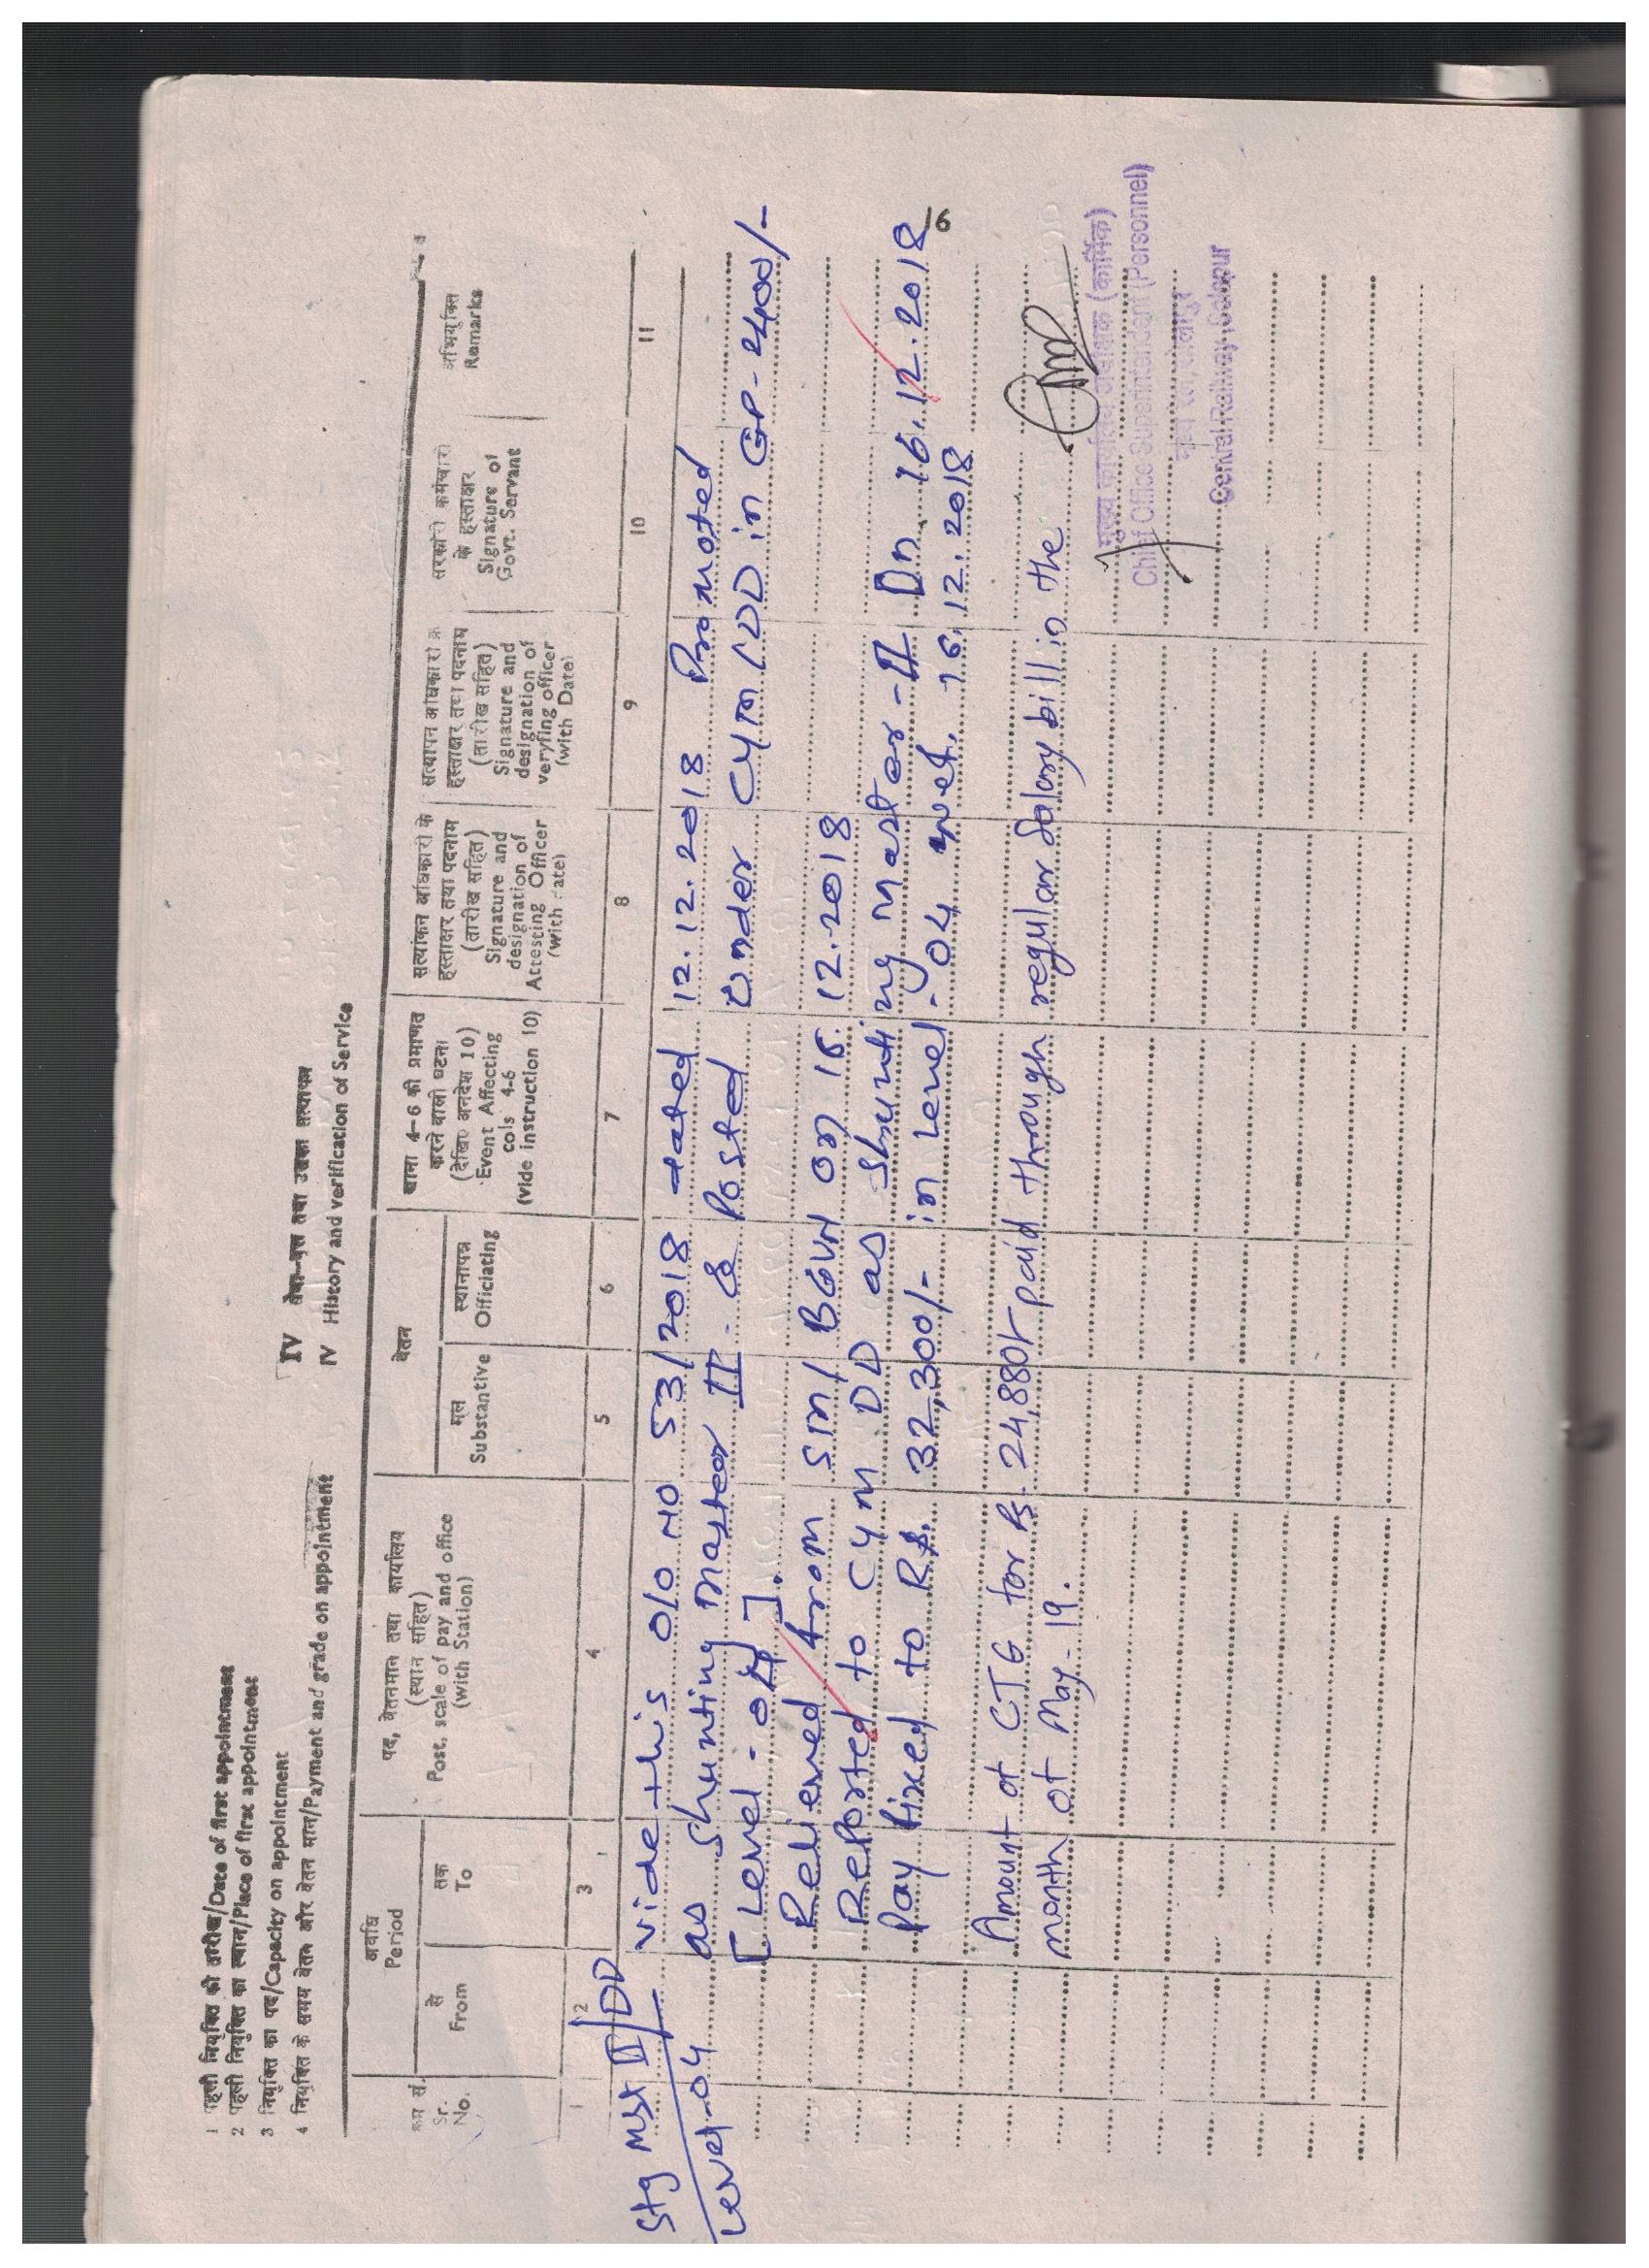 1 पहली नियुक्ति की तारीख/Date of first appointment
2 पहली नियुक्ति का स्थान/Place of first appointment
3 नियुक्ति का पद/Capacity on appointment
4 नियुक्ति के समय वेतन और वेतन मान/Payment and grade on appointment
IV सेवा-वृत्त तथा उसका सत्यापन
IV History and verification of Service
क्रम सं.
Sr.
No.
अवधि
Period
से
From
तक
To
पद, वेतनमान तथा कार्यालय
(स्थान सहित)
Post. scale of pay and office
(with Station)
वेतन
मूल
Substantive
स्थानापन्न
Officiating
खाना 4-6 को प्रमाणत
करने वाली घटना
(देखिए अनदेश 10)
Event Affecting
cols 4-6
(vide instruction 10)
सत्यांकन अधिकारी के
हस्ताक्षर तथा पदनाम
(तारीख सहित)
Signature and
designation of
Attesting Officer
(with date)
सत्यापन अधिकारी के
हस्ताक्षर तथा पदनाम
(तारीख सहित)
Signature and
designation of
veryfing officer
(with Date)
सरकारी कर्मचारी
के हस्ताक्षर
Signature of
Govt. Servant
अभियुक्ति
Remarks
1 2 3 4 5 6 7 8 9 10 11
Stg Mst II/DD
Level-04
vide this O/O NO 53/2018 dated 12.12.2018 Promoted
as Shunting Master II & Posted under CYM/DD in GP-2400/-
[Level-04].
Relieved from SM/BGVN on 15.12.2018
Reported to CYM DD as Shunting Master-II On 16.12.2018
16
Pay fixed to Rs. 32,300/- in level-04 wef. 16.12.2018
Amount of CTG for Rs. 24,880/- paid through regular salary bill in the
month of May-19.
मुख्य कार्यालय अधीक्षक (कार्मिक)
Chief Office Superintendent (Personnel)
मध्य रेल, सोलापुर
Central Railway, Solapur